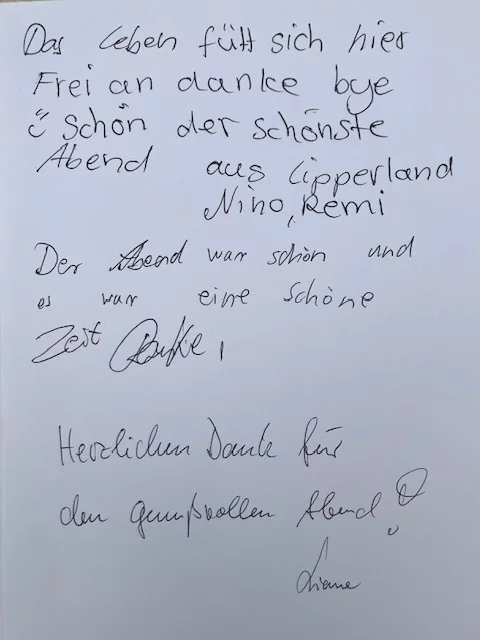 Das Leben fült sich hier
Frei an danke bye
Schön der schönste
Abend aus Lipperland
Nino, Remi
Der Abend war schön und
es war eine schöne
Zeit
Herzlichen Dank für
den genußvollen Abend
Liane